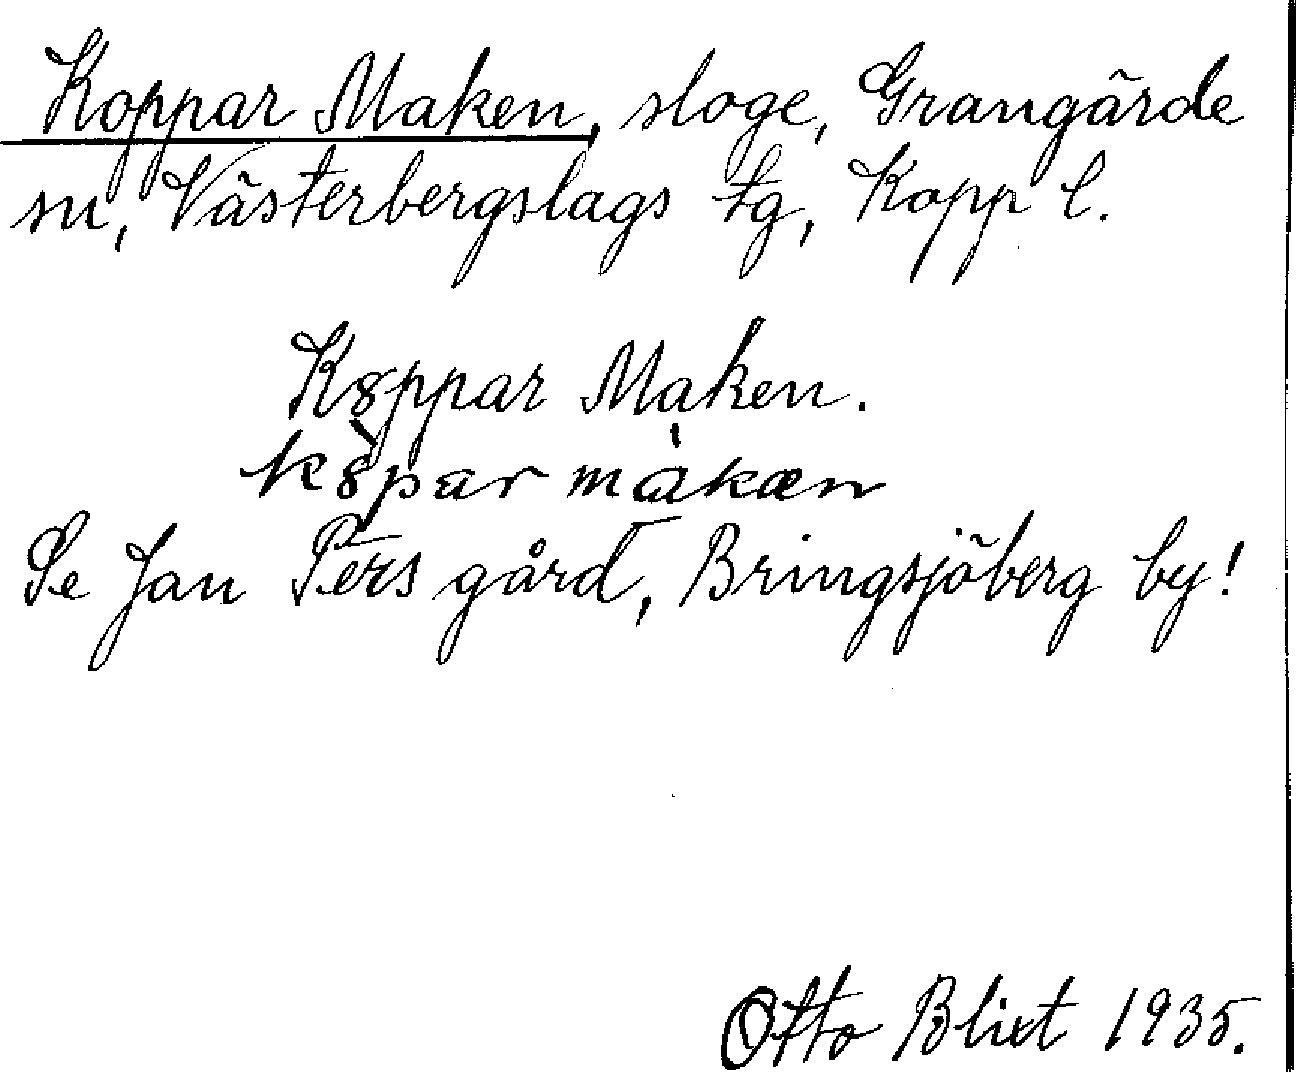 Koppar Maken, sloge, Grangärde
sn, Västerbergslags tg, Kopp l.
Koppar Maken.
kȣ̀par màkæn
Se Jan Pers gård, Bringsjöberg by!
Otto Blixt 1935.